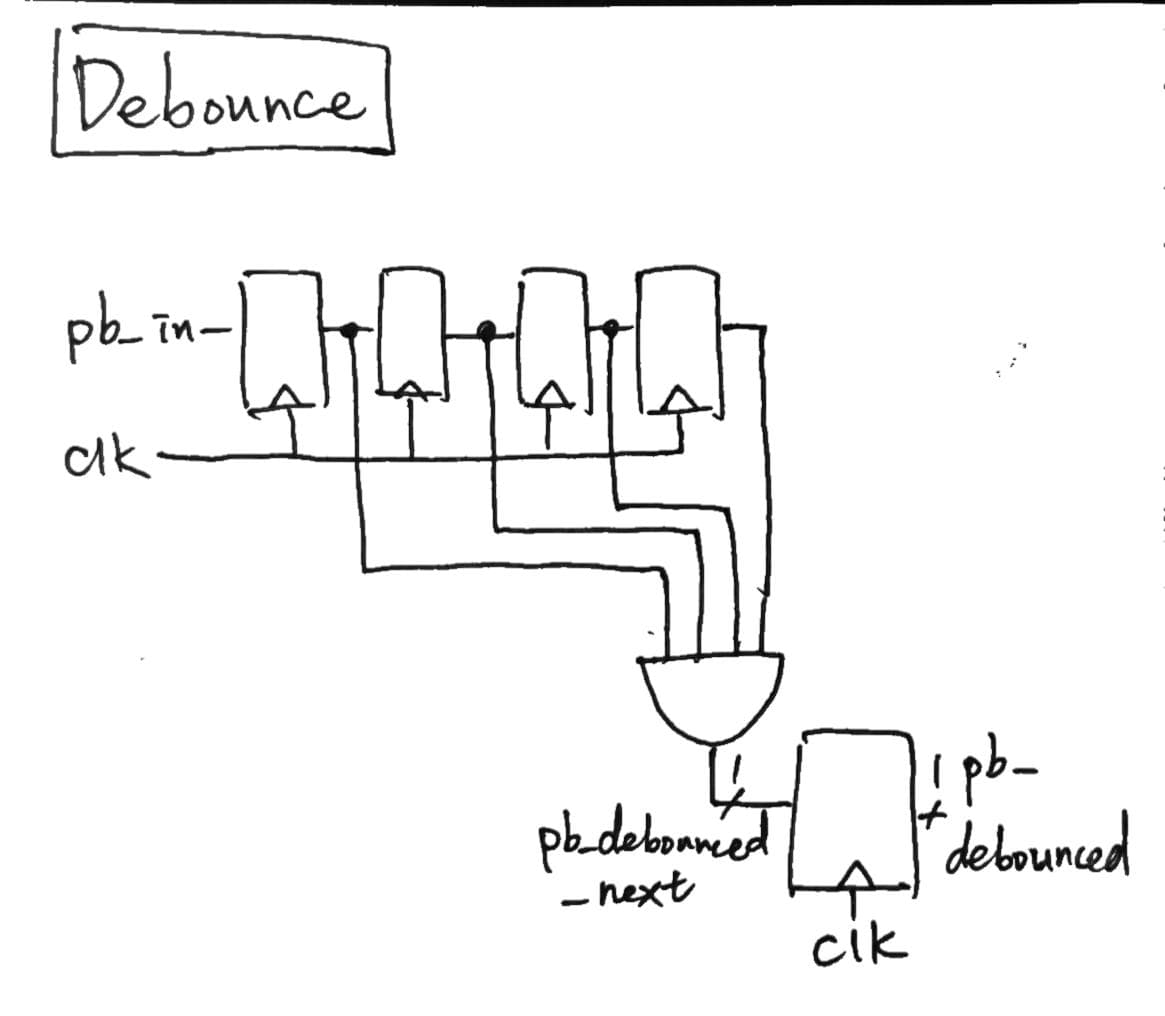 Debounce
pb_in
clk
1
pb_debounced
_next
1
pb_
debounced
clk